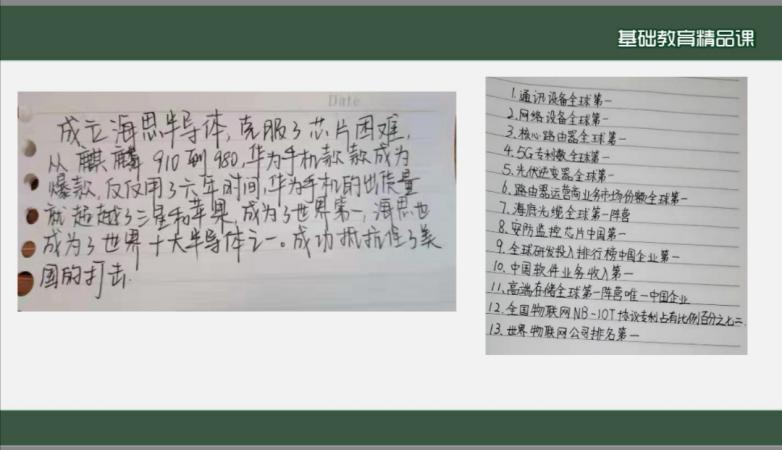 基础教育精品课
Date
成立海思半导体,克服了芯片困难,
从麒麟910到980,华为手机款款成为
爆款,仅仅用了六年时间,华为手机的出货量
就超越了三星和苹果,成为了世界第一,海思也
成为了世界十大半导体之一。成功抵抗住了美
国的打击.
1.通讯设备全球第一
2.网络设备全球第一
3.核心路由器全球第一
4.5G专利数全球第一
5.光伏逆变器全球第一
6.路由器运营商业务市场份额全球第一
7.海底光缆全球第一阵营
8.安防监控芯片中国第一
9.全球研发投入排行榜中国企业第一
10.中国软件业务收入第一
11.高端存储全球第一阵营唯一中国企业
12.全国物联网NB-IOT协议专利占有比例百分之七二
13.世界物联网公司排名第一